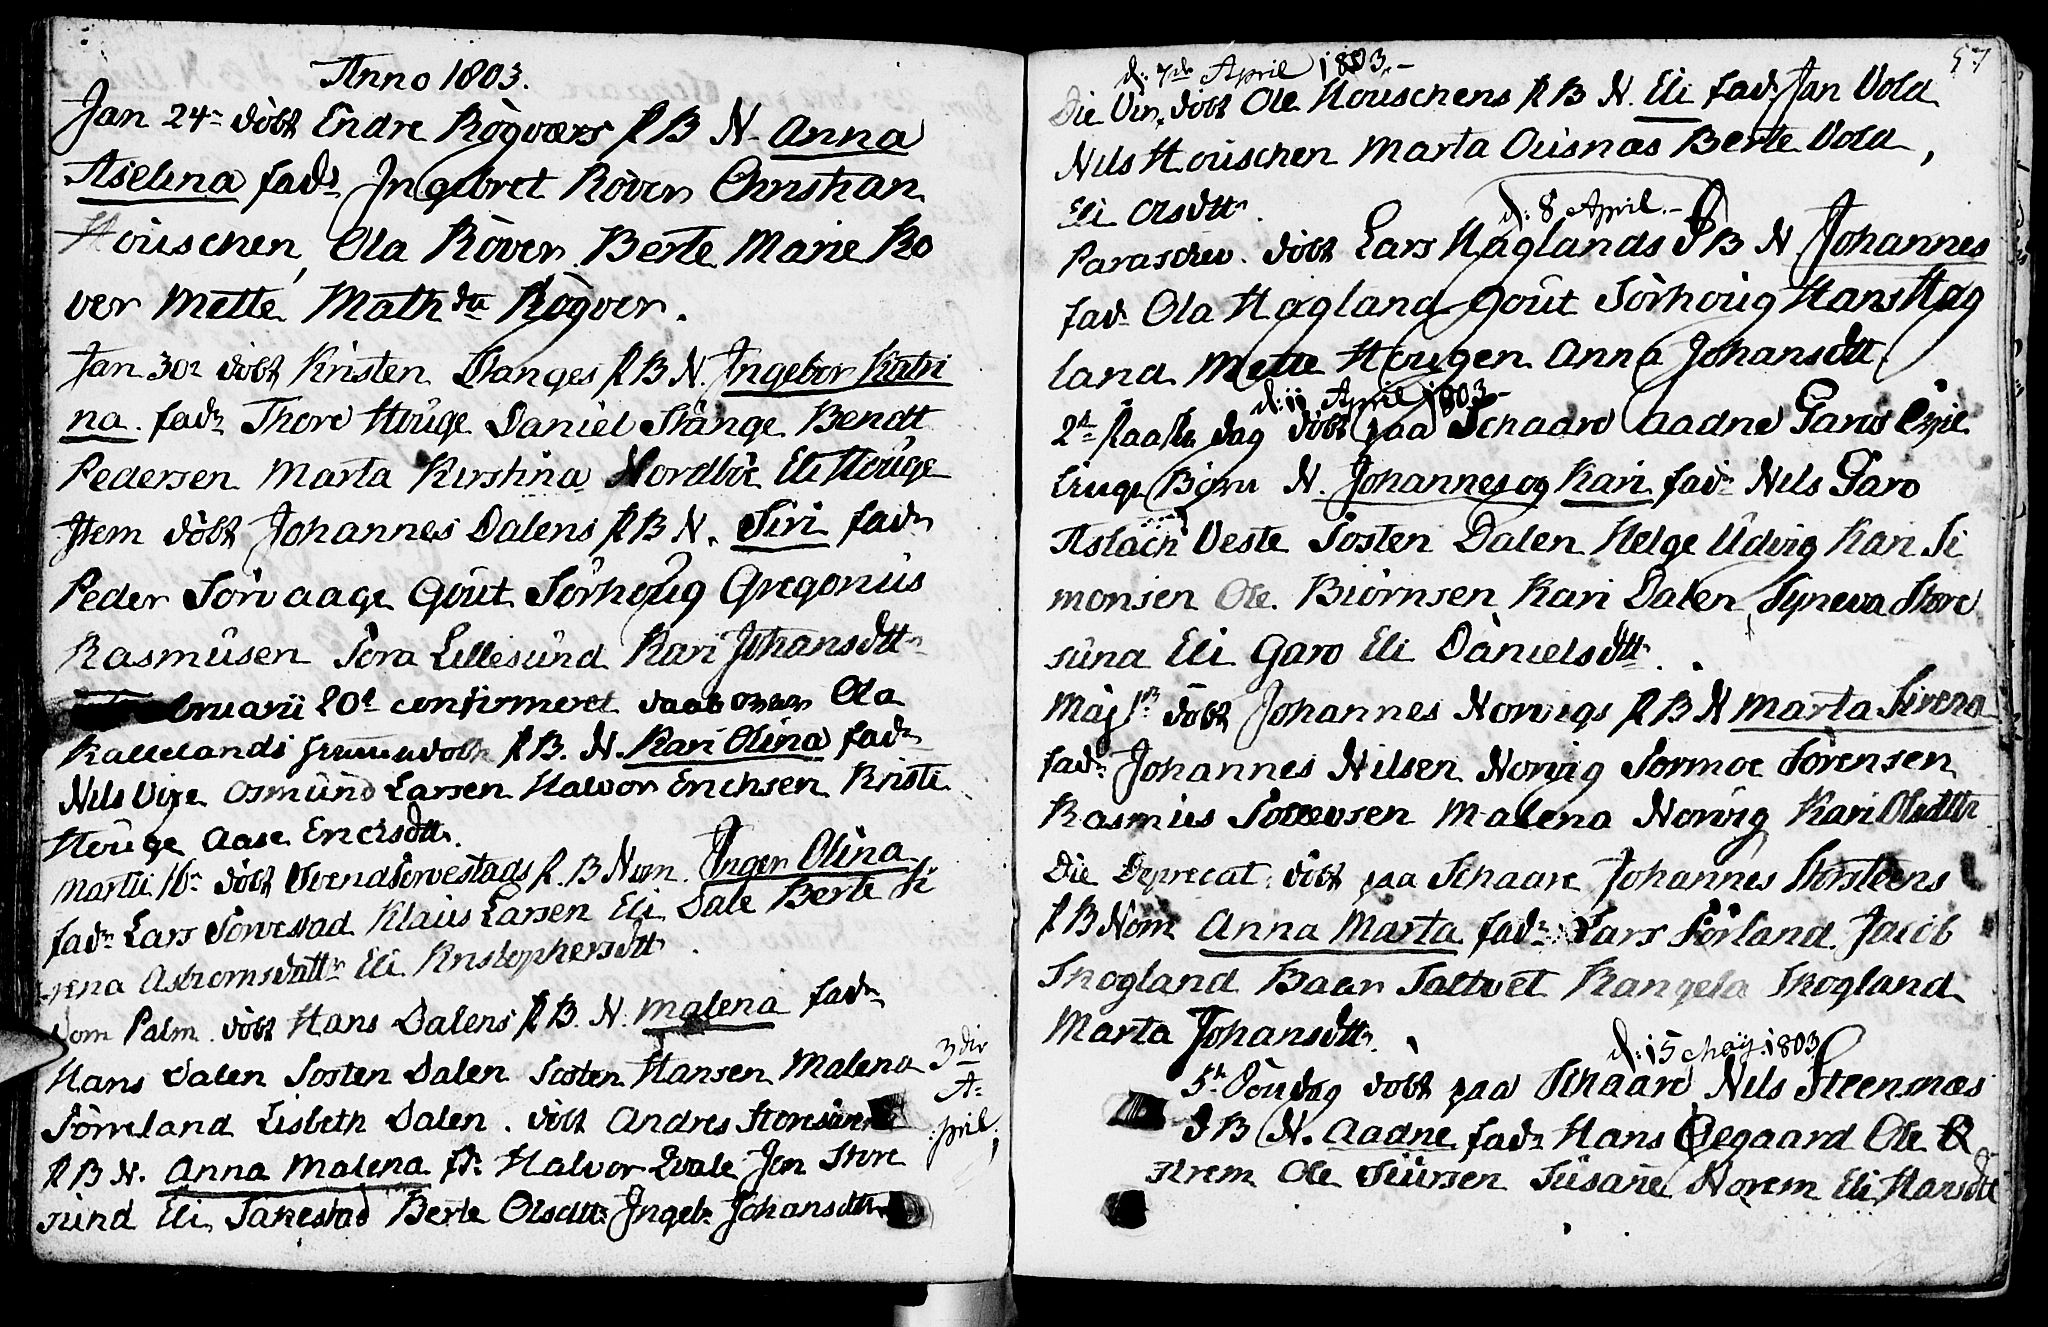 Anno 1803.
Jan 24 döbt Endre Rögværs P B N. Anna
Aselena fadr Ingebret Röver Christian
Houschen, Ola Röver Berte Marie Rö
ver Mette Mathda Rögver.
Jan 30 döbt Kristen Stanges P B N. Ingebor Katri
na. fadr Thore Houge Daniel Stange Bendt
Pedersen Marta Kirstina Nordböe Eli Houge
Item döbt Johannes Dalens P B N. Siri fadr
Peder Sörvaage Gout Sörhoug Gregorius
Rasmusen Tora Lillesund Kari Johansdttr
bruarii 20 confirmeret daaben Ola
Kallelands hiemmedöbte P B. N. Kari Olina fadr
Nils Vixe Osmund Larsen Halvor Erichsen Kriste
Houge Aase Erichsdttr.
Martii 16 döbt Svend Sörvestads P. B Nom. Inger Olina
fadr Lars Sörvestad Klaus Larsen Eli Dale Berte Si
rena Astromsdattr Eli Kristophersdttr.
Dom Palm. döbt Hans Dalens P B. N. Malena fadr
Hans Dalen Tosten Dalen Tosten Hansen Malena
3die
A-
pril.
Sörreland Lisbeth Dalen. döbt Andres Storesunds
P B N. Anna Malena fr. Halvor Qvale Jon Store
sund Eli Tanestad Berte Olsdttr Ingebr Johansdttr
57
d. 7de April 1803.
Die Vir. döbt Ole Houschens P B N. Eli fadr Jan Vold
Nils Houschen Marta Ousnæs Berte Vold,
Eli Olsdttr.
d. 8 April.
Parascheu. döbt Lars Haglands D B N Johannes
fadr Ola Hagland Gout Sörhoug Hans Hag
land Mette Hougen Anna Johansdttr.
d. 11 April 1803
2de Paaske dag döbt paa Schaare Aadne Garos
Tvuge Börn N. Johannes og Kari fadr Nils Garo
Aslach Veste Tosten Dalen Helge Udvig Kari Si
monsen Ole Biörnsen Kari Dalen, Syneva Store
sund Eli Garo Eli Danielsdttr.
Maj 1 döbt Johannes Norvigs P B N Marta Sirena
fadr Johannes Nilsen Norvig Tormoe Törensen
Rasmus Malena Norvig Kari Olsdttr
Die Deprecat. döbt paa Schaare Johannes Storsteens
P B Nom Anna Marta fadr Lars Förland Jacob
Skogland Baar Saltvet Rangela Skogland
Marta Johansdttr.
d. 15 Maj. 1803
5te Söndag döbt paa Schaare Nils Steensnæs
D B N. Aadne fadr Hans Öegaard Ole
strem Ole Siursen Susane Norem Eli Hansdttr